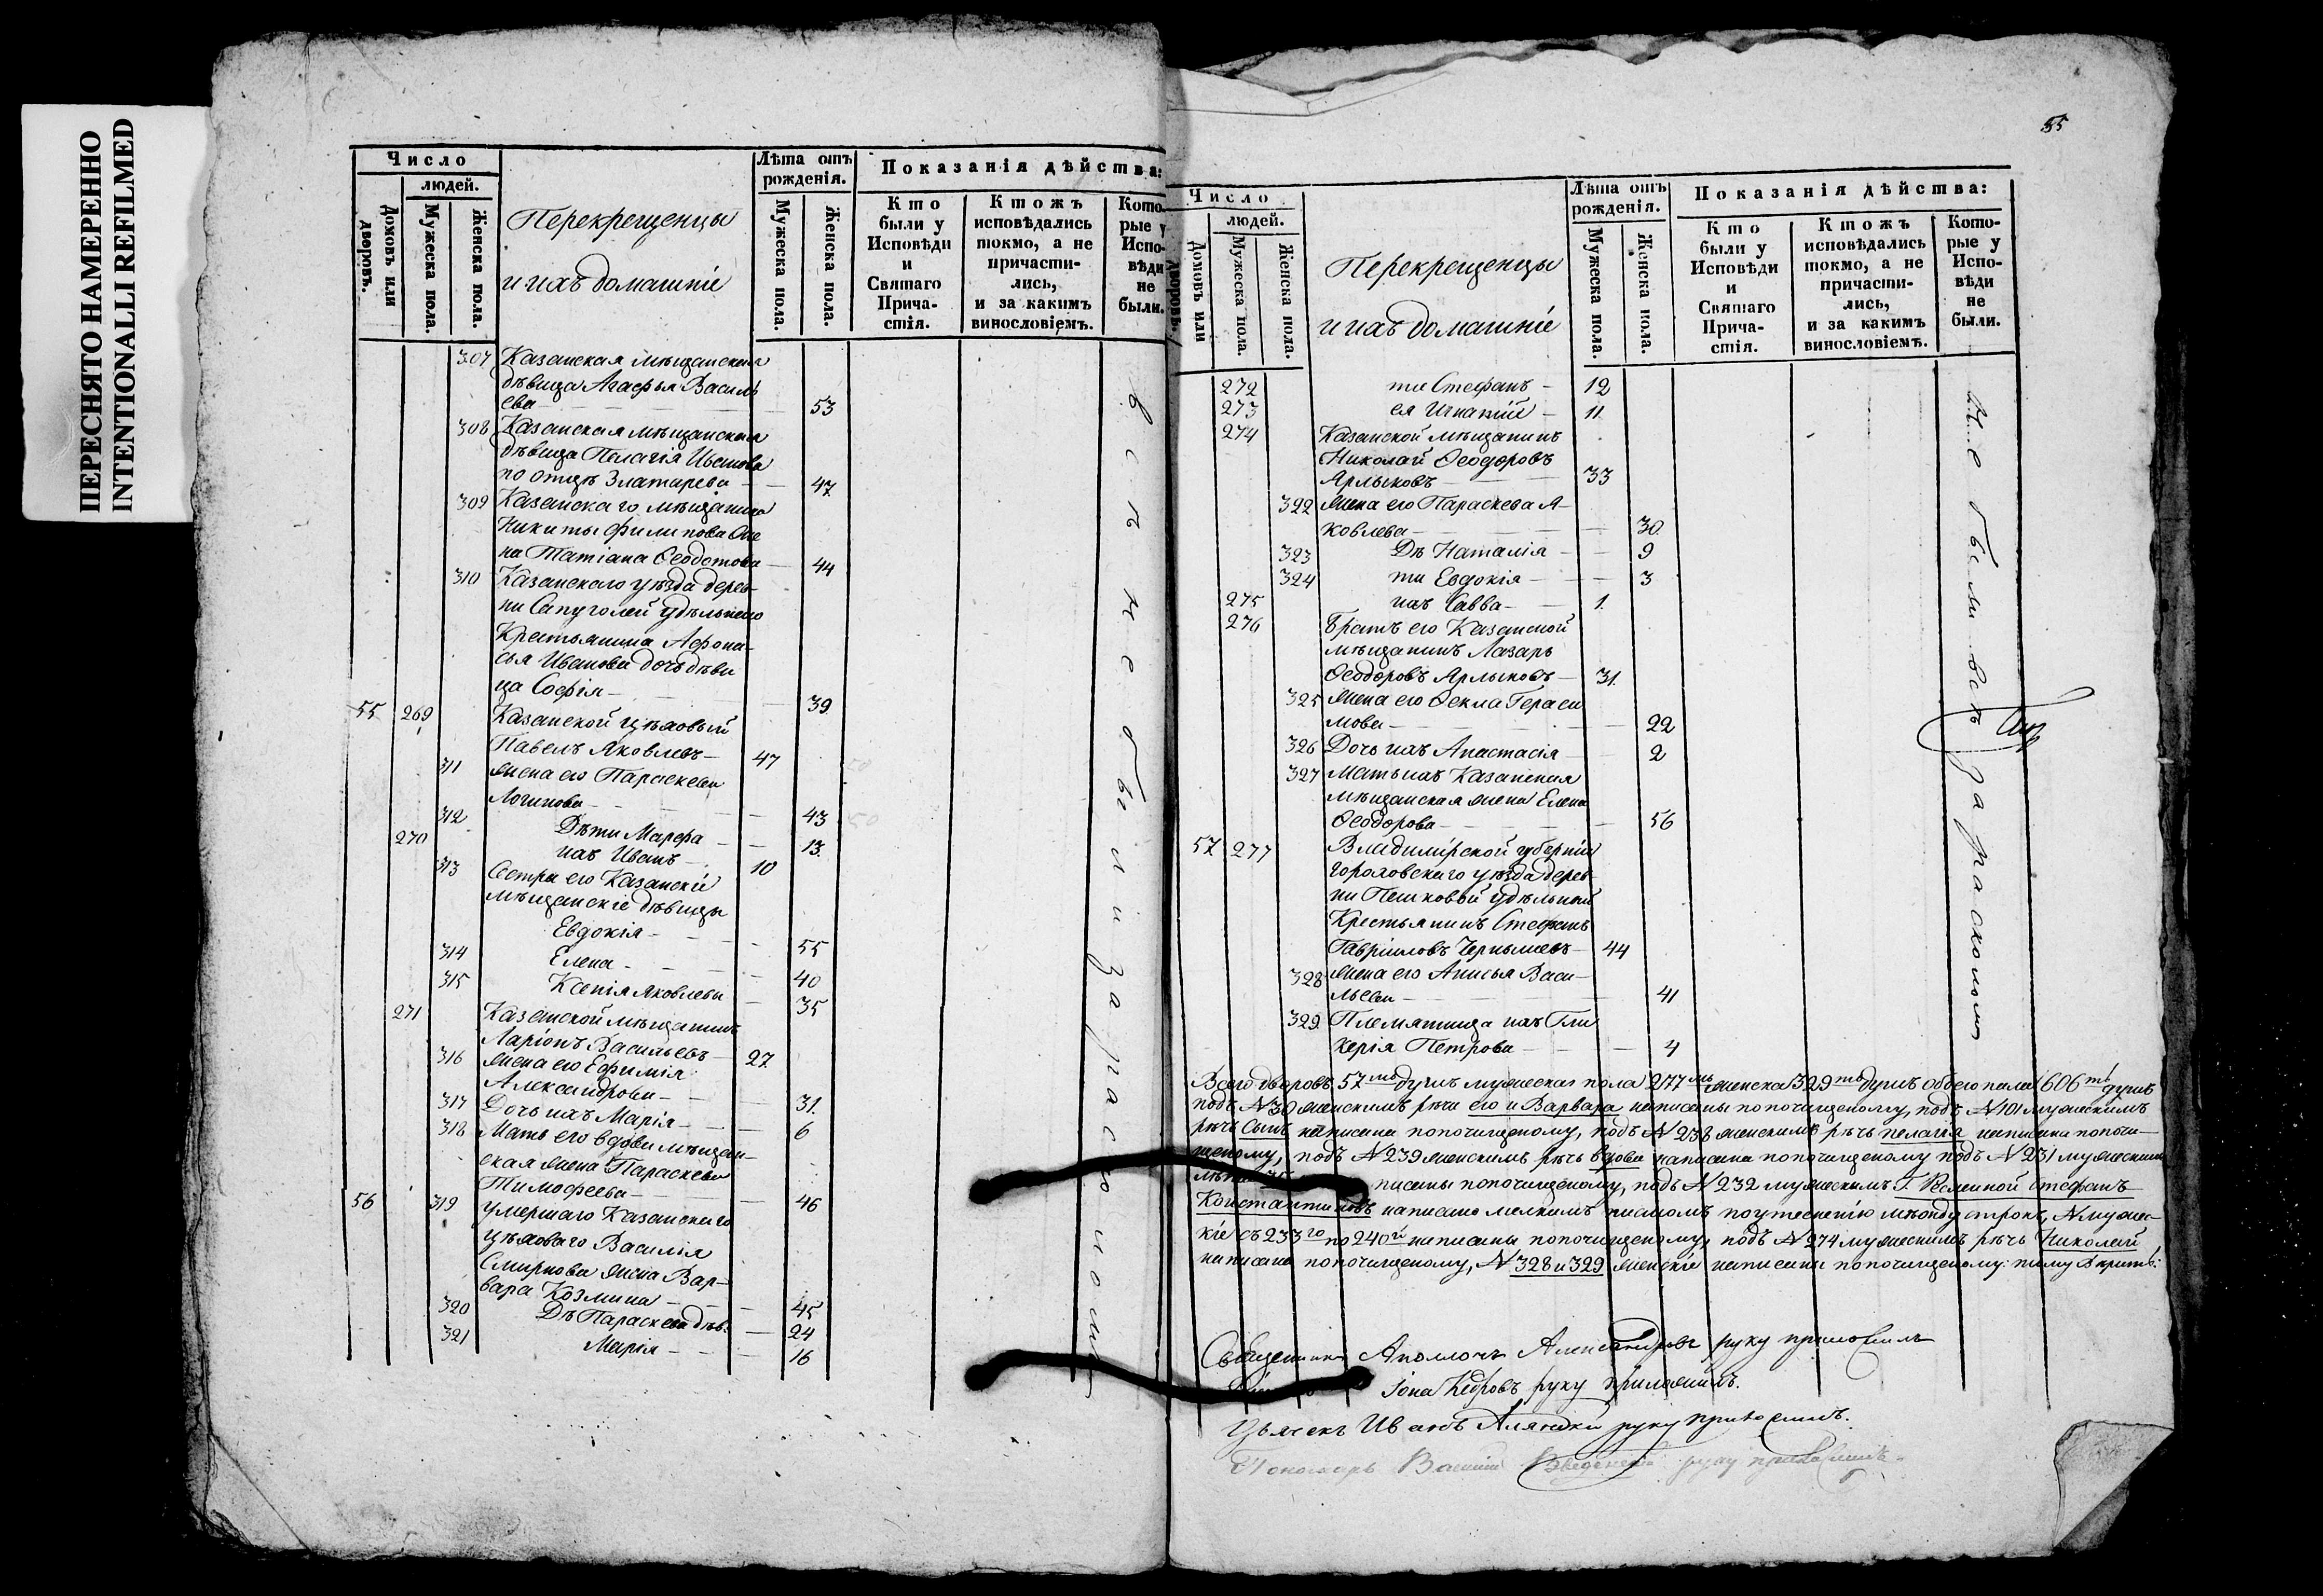 ПЕРЕСНЯТО НАМЕРЕННО
INTENTIONALLI REFILMED
Число
людей.
Домовъ или дворовъ.
Мужеска пола.
Женска пола.
Перекрещенцы
и ихъ домашніе
Лѣта отъ
рожденія.
Мужеска пола.
Женска пола.
Показанія дѣйства:
Кто
были у
Исповѣди
и
Святаго
Прича-
стія.
Ктожъ
исповѣдались
токмо, а не
причасти-
лись,
и за какимъ
винословіемъ.
Кото-
рые у
Испо-
вѣди
не
были.
307 Казанская мѣщанская
дѣвица Агафья Василь
ева — 53
308 Казанская мѣщанская
дѣвица Пелагія Иванова
по отцѣ Златарева — 47
309 Казанскаго мѣщанина
Никиты Филипова
на Татіана Ѳеодотова — 44
310 Казанскаго уѣзда дерев-
ни Сапуголей удѣльнаго
Крестьянина Афона-
сья Иванова дочь дѣви
ца Софія — 39
55 269 Казанской цѣховый
Павелъ Яковлевъ — 47
311 жена его Параскева
Логинова — 43
312 Дѣти Марфа — 13.
270 ихъ Иванъ — 10
313 Сестры его Казанскіе
мѣщанскіе дѣвицы
Евдокія — 55
314 Елена — 40
315 Ксенія Яковлевы — 35
271 Казанской мѣщанинъ
Ларіонъ Васильевъ — 27
316 жена его Ефимія
Александрова — 31.
317 Дочь ихъ Марія — 6
318 Мать его вдова мѣщан-
ская жена Параскева
Тимофеева — 46
56 319 умершаго Казанскаго
цѣховаго Василія
Смирнова жена Вар-
вара Козмина — 45
320 Дѣ Параскева дѣв. — 24
321 Марія — 16
всѣ не были за расколомъ
55
Число
людей.
Домовъ или дворовъ.
Мужеска пола.
Женска пола.
Перекрещенцы
и ихъ домашніе
Лѣта отъ
рожденія.
Мужеска пола.
Женска пола.
Показанія дѣйства:
Кто
были у
Исповѣди
и
Святаго
Прича-
стія.
Ктожъ
исповѣдались
токмо, а не
причасти-
лись,
и за какимъ
винословіемъ.
Кото-
рые у
Испо-
вѣди
не
были.
272 ти Стефанъ — 12
273 ея Игнатій — 11
274 Казанской мѣщанинъ
Николай Ѳеодоровъ
Ярлыковъ — 33
322 жена его Параскева Я-
ковлева — 30.
323 Дѣ Наталія — 9
324 ти Евдокія — 3
275 ихъ Савва — 1.
276 Братъ его Казанской
мѣщанинъ Лазарь
Ѳеодоровъ Ярлыковъ — 31.
325 жена его Ѳекла Гераси
мова — 22
326 Дочь ихъ Анастасія — 2
327 Мать ихъ Казанская
мѣщанская жена Елена
Ѳеодорова — 56
57 277 Владимірской губерніи
Гороховскаго уѣзда дерев-
ни Пешковой удѣльный
Крестьянинъ Стефанъ
Гавриловъ Чернышевъ — 44
328 жена его Анисья Васи-
льева — 41
329. Племянница ихъ Гли
керія Петрова — 4
не были всѣ за расколомъ
Всего дворовъ 57мь душъ мужеска пола 277мь женска 329ть душъ обоего пола 606ть душъ
подъ № 30 женскимъ рѣчи его и Варвара написаны попочищеному, подъ № 101 мужескимъ
рѣчь сынъ написана попочищеному, подъ № 238 женскимъ рѣчь пелагія написана попочи-
щеному, подъ № 239 женскимъ рѣчь вдова написана попочищеному подъ № 231 мужескимъ
писаны попочищеному, подъ № 232 мужескимъ Стефанъ
Константиновъ написано мелкимъ письмомъ поутесненію между строкъ, № мужес-
кіе съ 233го по 240й написаны попочищеному, подъ № 274 мужескимъ рѣчь Николай
написана попочищеному, № 328 и 329 женскіе написаны попочищеному
Священникъ Аполлонъ Александровъ руку приложилъ
Іона Кедровъ руку приложилъ.
Дьячекъ Иванъ руку приложилъ.
Пономарь Василій Введенскій руку приложилъ